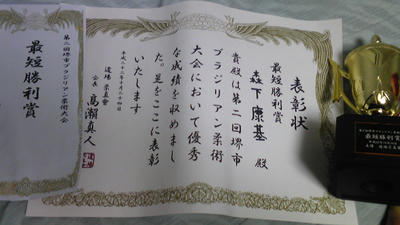 表彰状
最短勝利賞
森下康基 殿
貴殿は第二回堺市
ブラジリアン柔術
大会において優秀
な成績を収めまし
た。並をここに表彰
いたします
会長 高瀬真人
第二回堺市ブラジリアン柔術大会
最短勝利賞
最短勝利賞